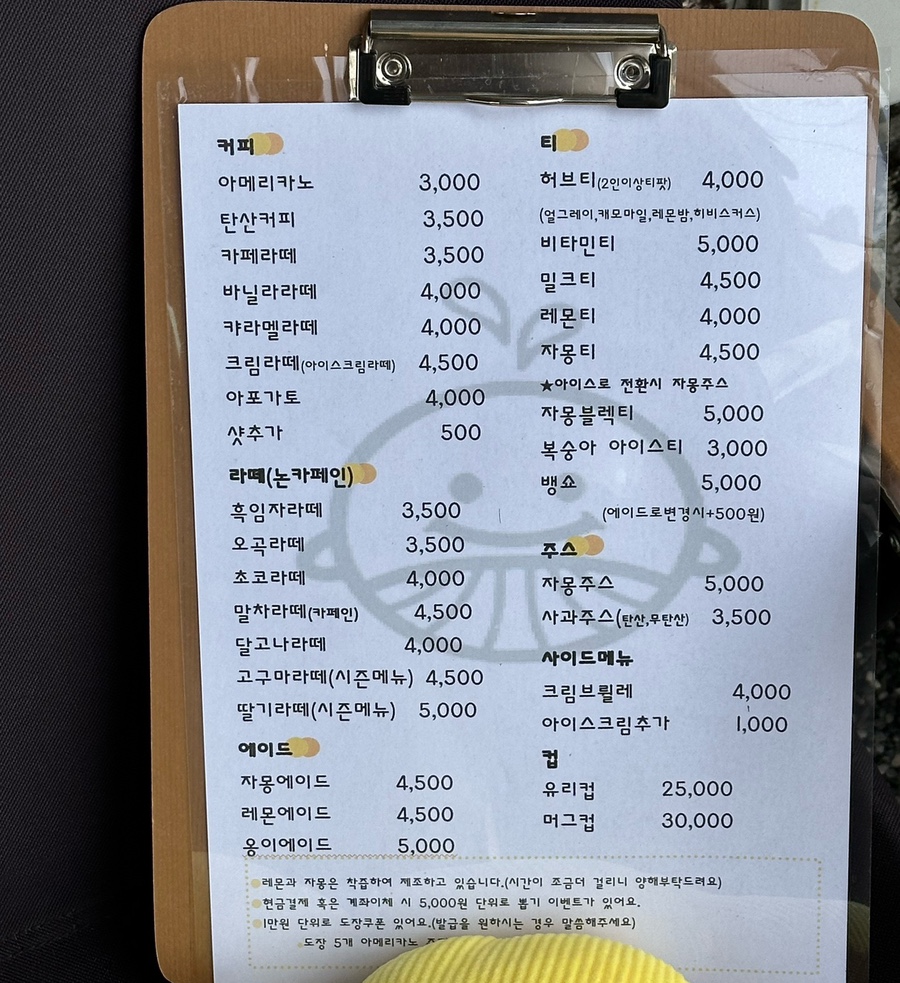 커피
아메리카노 3,000
탄산커피 3,500
카페라떼 3,500
바닐라라떼 4,000
캬라멜라떼 4,000
크림라떼(아이스크림라떼) 4,500
아포가토 4,000
샷추가 500
라떼(논카페인)
흑임자라떼 3,500
오곡라떼 3,500
초코라떼 4,000
말차라떼(카페인) 4,500
달고나라떼 4,000
고구마라떼(시즌메뉴) 4,500
딸기라떼(시즌메뉴) 5,000
에이드
자몽에이드 4,500
레몬에이드 4,500
옹이에이드 5,000
티
허브티(2인이상티팟) 4,000
(얼그레이,캐모마일,레몬밤,히비스커스)
비타민티 5,000
밀크티 4,500
레몬티 4,000
자몽티 4,500
★아이스로 전환시 자몽주스
자몽블렉티 5,000
복숭아 아이스티 3,000
뱅쇼 5,000
(에이드로변경시+500원)
주스
자몽주스 5,000
사과주스(탄산,무탄산) 3,500
사이드메뉴
크림브륄레 4,000
아이스크림추가 1,000
컵
유리컵 25,000
머그컵 30,000
레몬과 자몽은 착즙하여 제조하고 있습니다.(시간이 조금더 걸리니 양해부탁드려요)
현금결제 혹은 계좌이체 시 5,000원 단위로 뽑기 이벤트가 있어요.
1만원 단위로 도장쿠폰 있어요.(발급을 원하시는 경우 말씀해주세요)
도장 5개 아메리카노